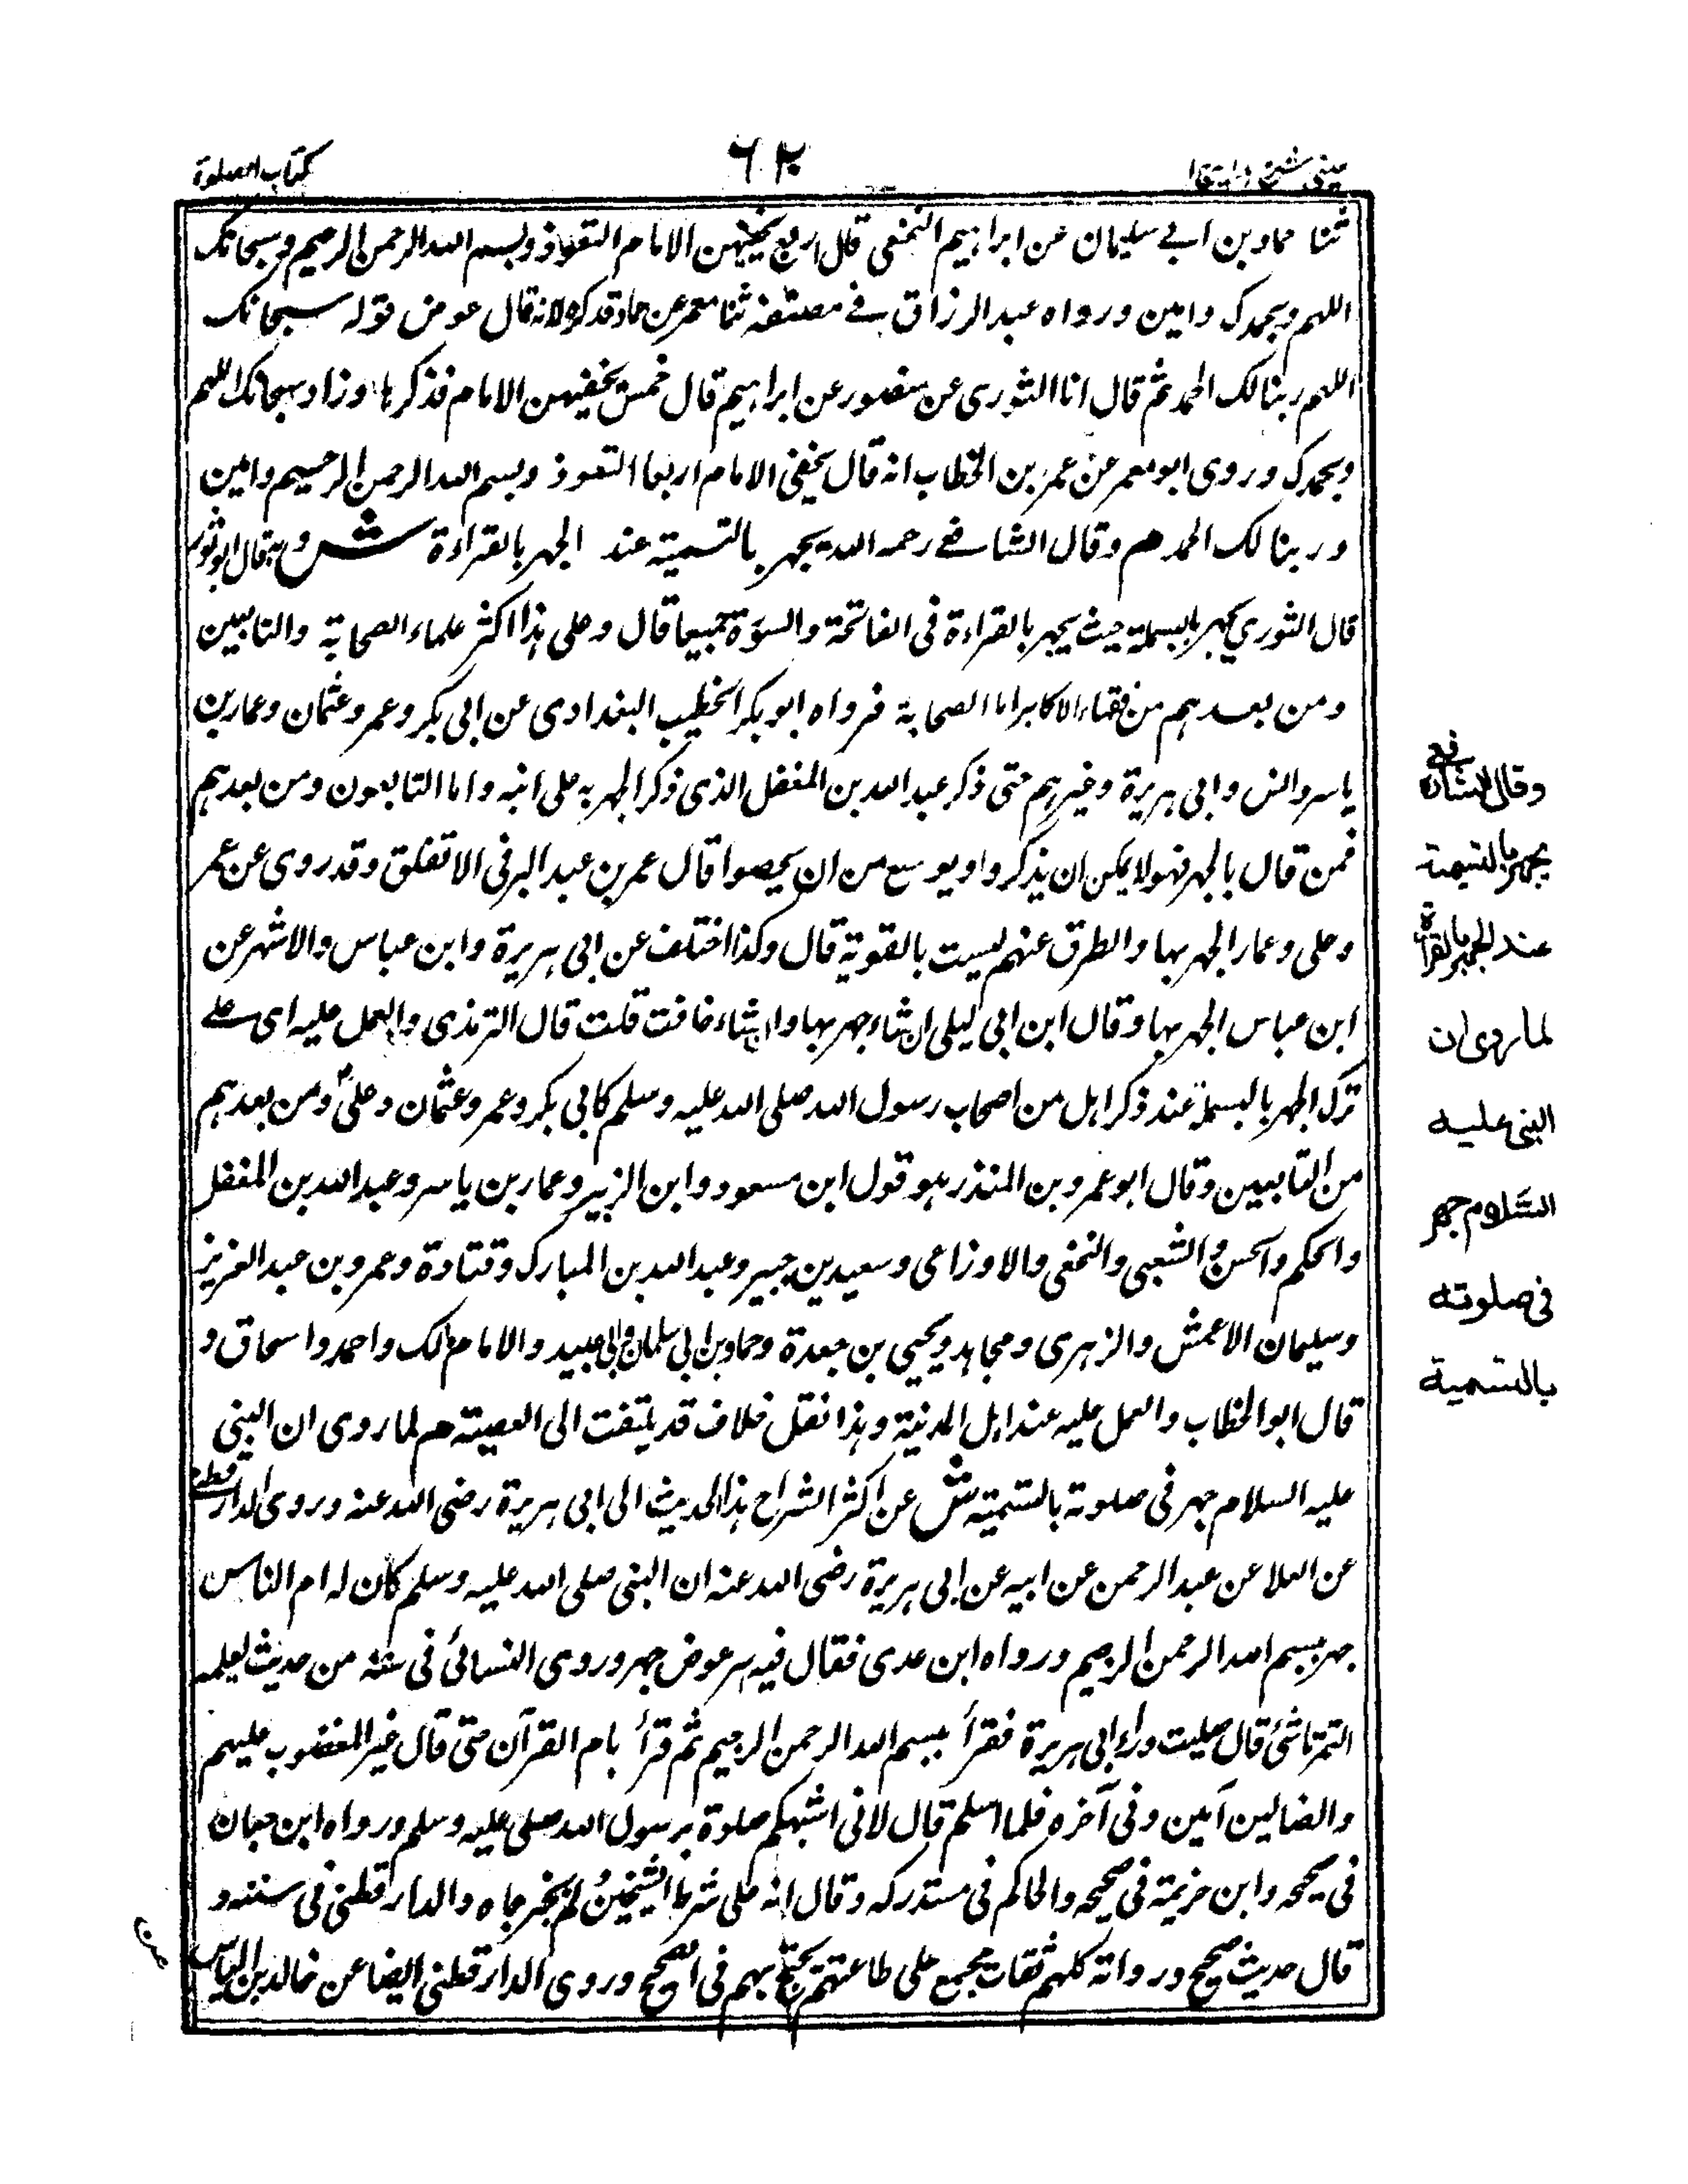 عینی شرح ہدایہ ج ا
٦٢٠
كتاب الصلوة
ثنا حماد بن ابي سليمان عن ابراہيم النخعى قال اربع يخفيہن الامام التعوذ وبسم الله الرحمن الرحيم وسبحانك
اللهم وبحمدك وامين ورواه عبد الرزاق فى مصنفه ثنا معمر عن حماد قد كره لانه قال عوض قوله سبحانك
اللهم ربنا لك الحمد ثم قال انا الثورى عن منصور عن ابراہيم قال خمس يخفيہن الامام فذكرہا وزاد سبحانك اللهم
وبحمدك وروى ابو معمر عن عمر بن الخطاب انه قال يخفى الامام اربعا التعوذ وبسم الله الرحمن الرحيم وامين
وربنا لك الحمد م وقال الشافعے رحمه الله يجهر بالتسمية عند الجهر بالقراءة ش وبه قال ابو ثور
قال الثوري يجهر بالبسملة حيث يجهر بالقراءة فى الفاتحة والسورة جميعا قال وعلى ہذا اكثر علماء الصحابة والتابعين
ومن بعدہم من فقهاء الاكابر اما الصحابة فرواه ابو بكر الخطيب البغدادى عن ابى بكر وعمر وعثمان وعمار بن
ياسر وانس وابى ہريرة وغيرہم حتى ذكر عبد الله بن المغفل الذى ذكر الجهر به على ابنه واما التابعون ومن بعدہم
فمن قال بالجهر فهو لا يمكن ان يذكروا ويوسع من ان يحصوا قال عمر بن عبد البر فى الاتفلق وقد روى عن عمر
وعلى وعمار الجهر بها والطرق عنهم ليست بالقوية قال وكذا اختلف عن ابى ہريرة وابن عباس والاشهر عن
ابن عباس الجهر بها وقال ابن ابى ليلى ان شاء جهر بها وان شاء خافت قلت قال الترمذى والعمل عليه اى علے
ترك الجهر بالبسملة عند ذكر اہل من اصحاب رسول الله صلى الله عليه وسلم كابى بكر وعمر وعثمان وعلى ومن بعدہم
من التابعين وقال ابو عمرو بن المنذر ہو قول ابن مسعود وابن الزبير وعمار بن ياسر وعبد الله بن المغفل
والحكم والحسن والشعبى والنخعى والاوزاعى وسعيد بن جبير وعبد الله بن المبارك وقتادة وعمرو بن عبد العزيز
وسليمان الاعمش والزہرى ومجاہد ويحيى بن جعدة وحماد بن ابى سلمان وابى عبيد والامام مالك واحمد واسحاق و
قال ابو الخطاب والعمل عليه عند اہل المدنية وہذا نقل خلاف قد يلتفت الى العصبية م لما روى ان النبى
عليه السلام جهر فى صلوة بالتسمية ش عن اكثر الشراح ہذا الحديث الى ابى ہريرة رضى الله عنه وروى الدار قطنے
عن العلا عن عبد الرحمن عن ابيه عن ابى ہريرة رضى الله عنه ان النبى صلى الله عليه وسلم كان له ام الناس
جهر ببسم الله الرحمن الرحيم ورواه ابن عدى فقال فيه سر عوض جهر وروى النسائى فى سننه من حديث لعلمه
التمرتاشئ قال صليت وراء ابى ہريرة فقرأ ببسم الله الرحمن الرحيم ثم قرأ بام القرآن حتى قال غير المغضوب عليهم
والضالين آمين وفى آخره فلما سلم قال لانى اشبهكم صلوة برسول الله صلى عليه وسلم ورواه ابن حبان
فى صحيحه وابن خزيمة فى صحيحه والحاكم فى مستدركه وقال انه على شرط الشيخين ولم يخرجاه والدار قطنى فى سننه و
قال حديث صحيح ورواته كلهم ثقات مجمع على طاعتهم يحتج بهم فى الصحيح وروى الدار قطنى ايضا عن خالد بن الياس
وقال الشافعي
يجهر بالتسمية
عند الجهر بالقراءة
لما روى ان
النبى عليه
السلام جهر
فى صلوته
بالتسمية
عن